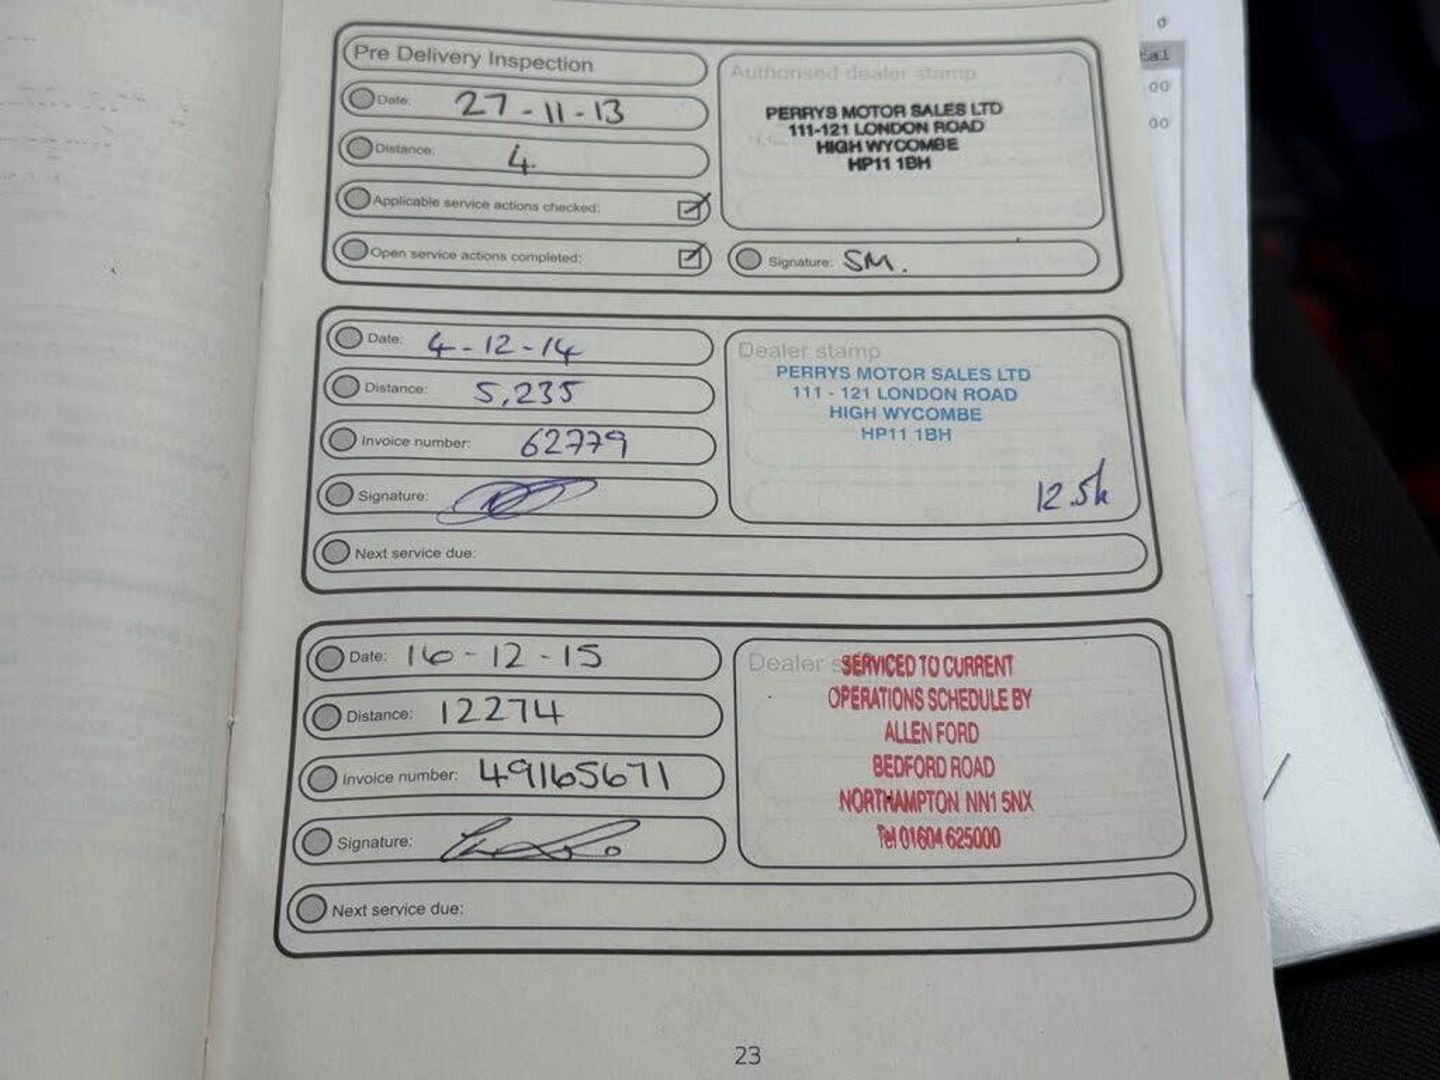 Pre Delivery Inspection
Date: 27-11-13
Distance: 4
Applicable service actions checked:
Open service actions completed:
Authorised dealer stamp
PERRYS MOTOR SALES LTD
111-121 LONDON ROAD
HIGH WYCOMBE
HP11 1BH
Signature: SM.
Date: 4-12-14
Distance: 5,235
Invoice number: 62779
Signature:
Next service due:
Dealer stamp
PERRYS MOTOR SALES LTD
111 - 121 LONDON ROAD
HIGH WYCOMBE
HP11 1BH
12.5k
Date: 16-12-15
Distance: 12274
Invoice number: 49165671
Signature:
Next service due:
Dealer
SERVICED TO CURRENT
OPERATIONS SCHEDULE BY
ALLEN FORD
BEDFORD ROAD
NORTHAMPTON NN1 5NX
Tel 01604 625000
23
00
00